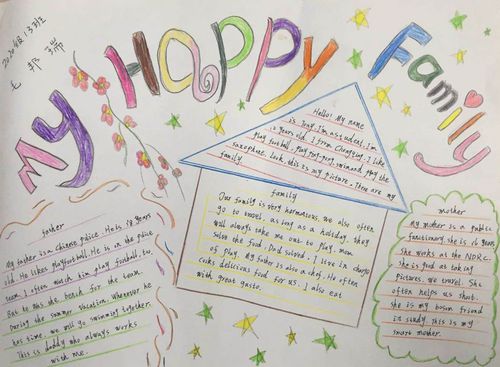 2020级13班
My Happy Family
Hello! My name
is Tony. I'm a student. I'm
12 years old. I from Chongqing. I like
play football, play ping-pong, swim and play the
saxophone. Look, this is my picture. There are my
family.
family
Our family is very harmonious, we also often
go to travel, as long as a holiday, they
will always take me out to play. mom
solve the food. Dad solved. I live in charge
of play. My father is also a chef. He often
cooks delicious food for us. I also eat
with great gusto.
father
My father is a chinese police. He is 38 years
old. He likes play football. He is in the police
team. I often watch him play football, too.
But he was the bench for the team.
During the summer vacation. Whenever he
has time, we will go swimming together.
This is daddy who always works
with me.
mother
My mother is a public
functionary. she is 36 years
She works at the NDRC.
She is good at taking
pictures. we travel. She
often helps us shoot.
she is my bosom friend
in study. this is my
smart mother.